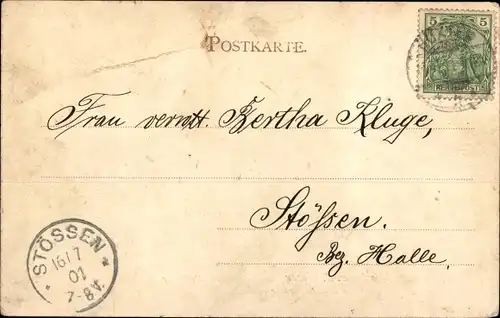 POSTKARTE.
5 5
REICHSPOST
Frau verwitt. Bertha Kluge,
Stößen.
Bez. Halle.
STÖSSEN
16/7
01
7-8V.